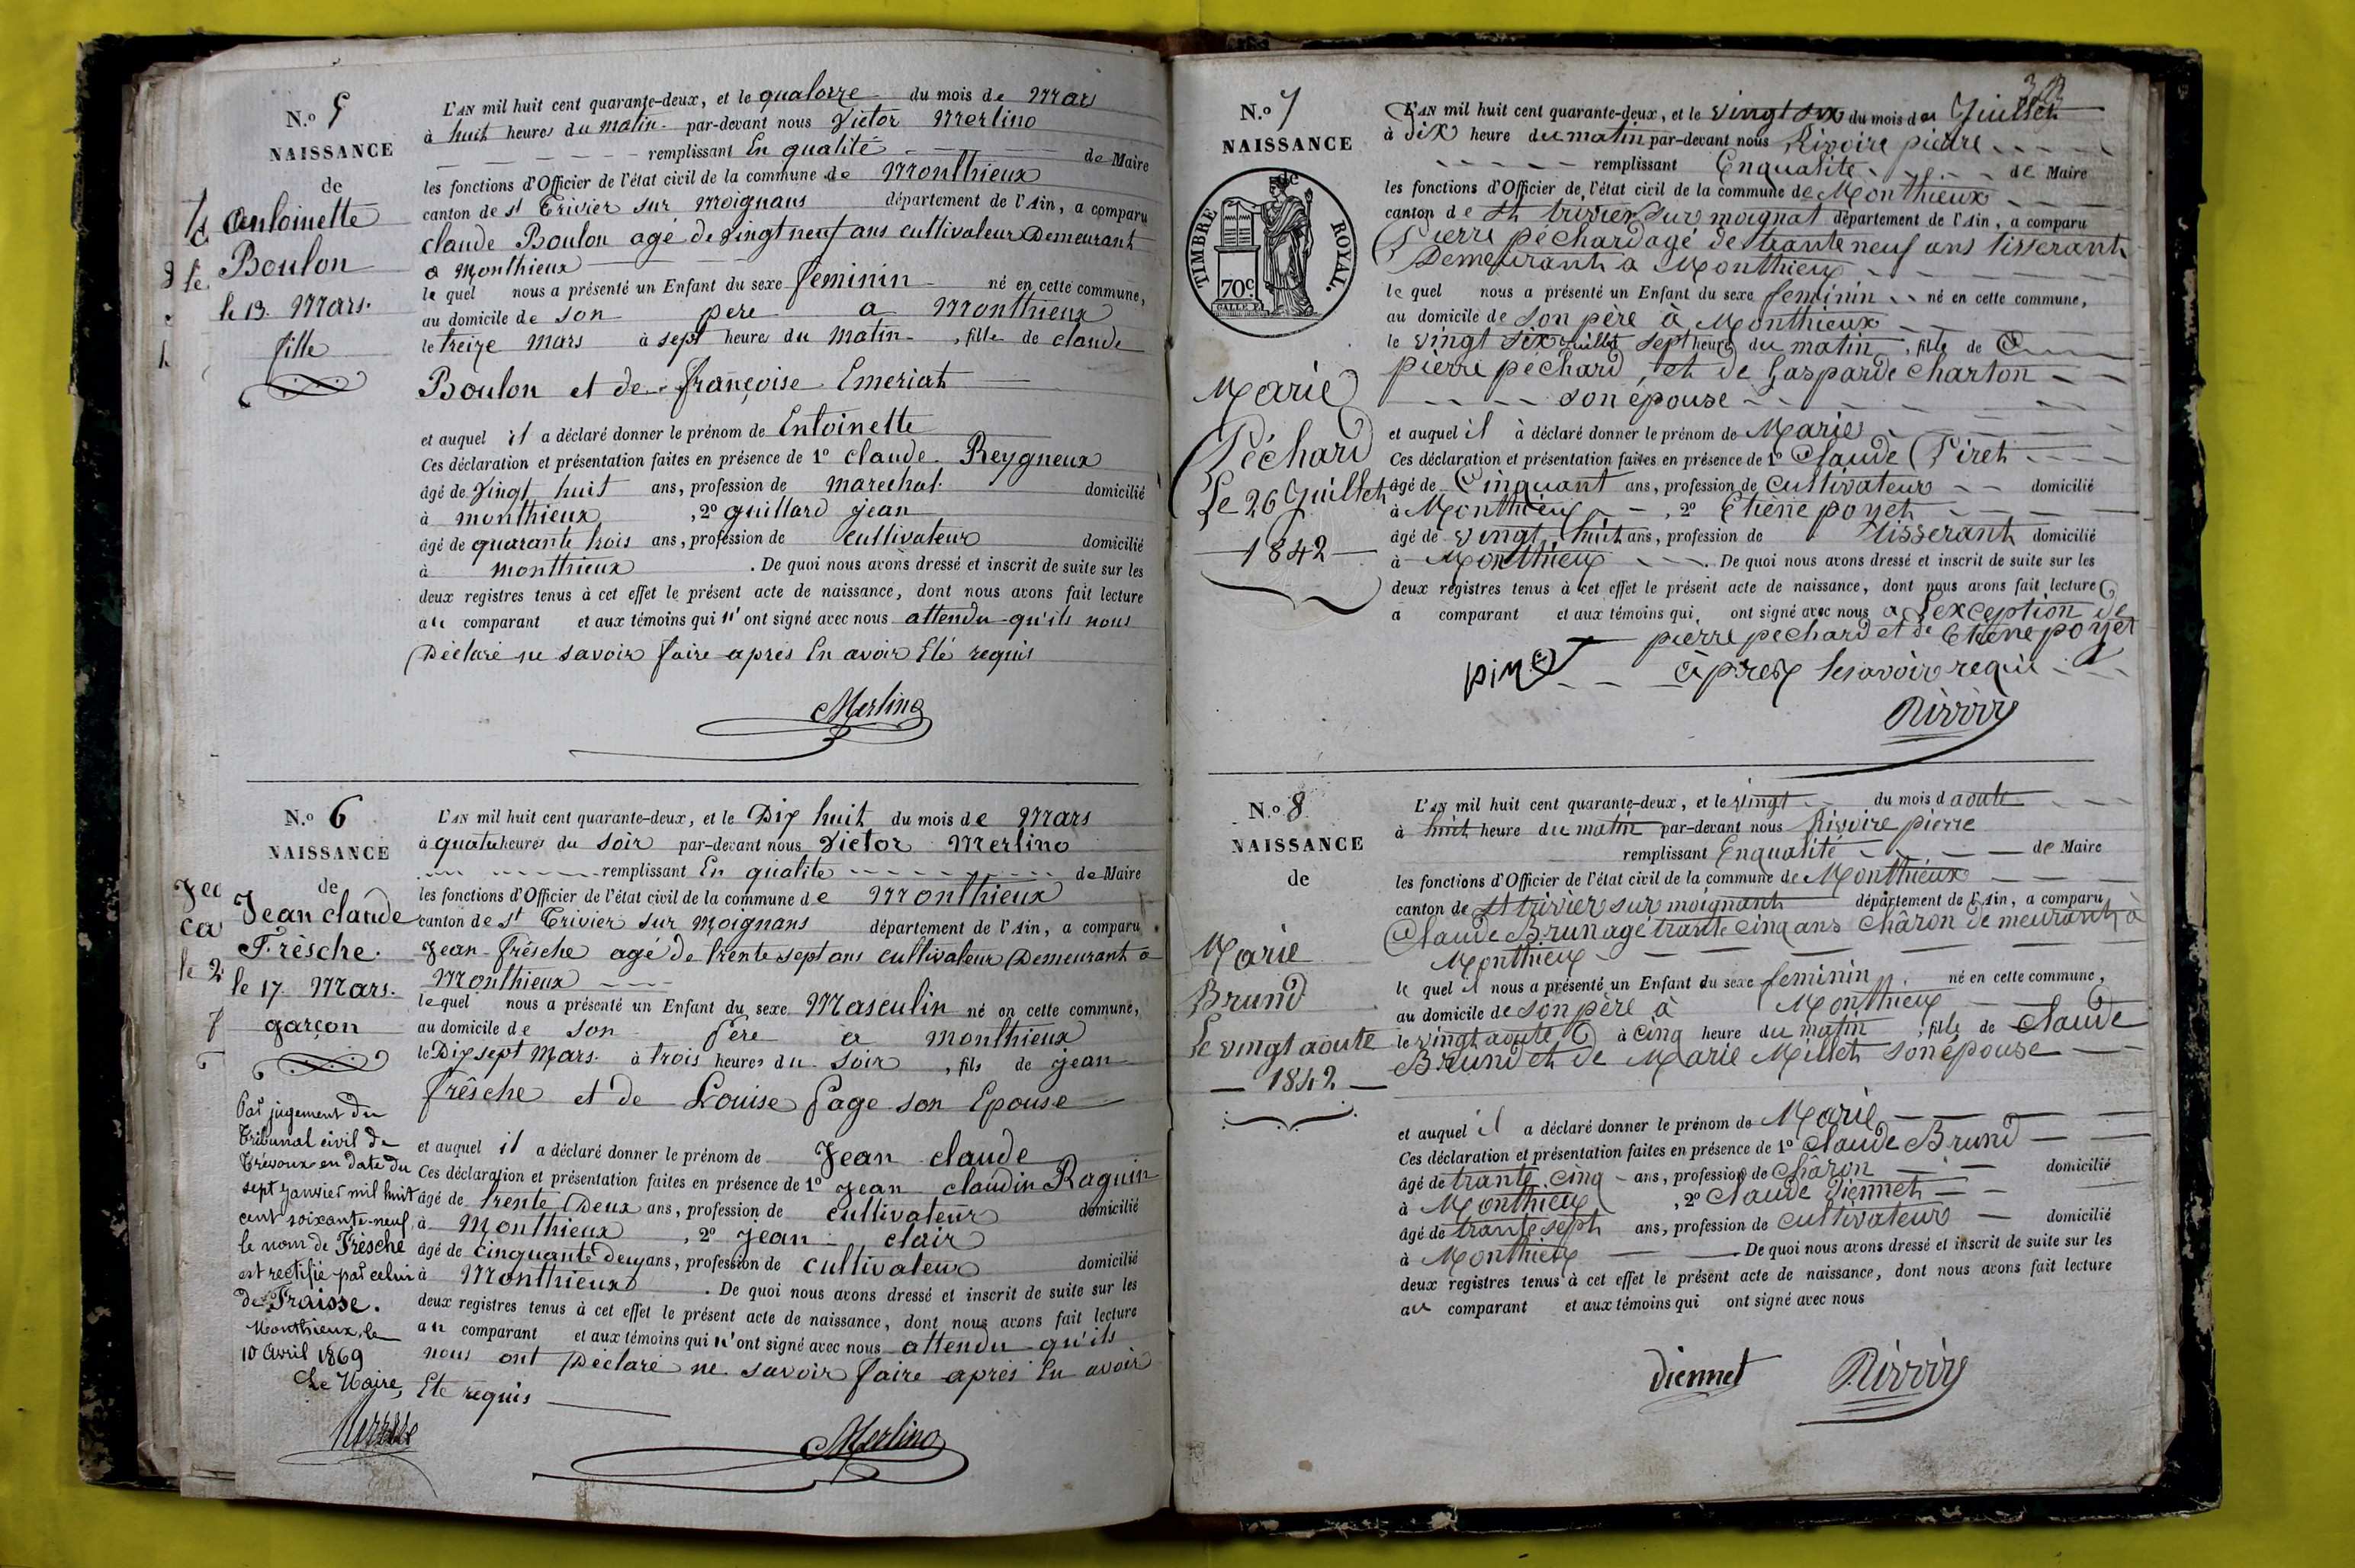 N.o 5
NAISSANCE
de
Antoinette
Boulon
le 13. Mars.
fille
L'AN mil huit cent quarante-deux, et le quatorze du mois de Mars
à huit heures du matin par-devant nous Victor Merlino
remplissant En qualité de Maire
les fonctions d'Officier de l'état civil de la commune de Monthieux
canton de st Trivier sur Moignans département de l'Ain, a comparu
claude Boulon agé de vingt neuf ans cultivateur Demeurant
a Monthieux
le quel nous a présenté un Enfant du sexe feminin né en cette commune,
au domicile de son pere a Monthieux
le treize mars à sept heures du matin, fille de claude
Boulon et de françoise Emeriat
et auquel il a déclaré donner le prénom de Entoinette
Ces déclaration et présentation faites en présence de 1o claude Reygneux
âgé de vingt huit ans, profession de marechal domicilié
à monthieux, 2o guillard jean
âgé de quarante trois ans, profession de cultivateur domicilié
à monthieux. De quoi nous avons dressé et inscrit de suite sur les
deux registres tenus à cet effet le présent acte de naissance, dont nous avons fait lecture
au comparant et aux témoins qui n'ont signé avec nous attendu qu'ils nous
Déclaré ne savoir faire après En avoir Eté requis
Merlino
N.o 6
NAISSANCE
de
Jean claude
Frèsche.
le 17. Mars.
garçon
Par jugement du
Tribunal civil de
Trévoux en date du
sept Janvier mil huit
cent soixante-neuf
le nom de Frèsche
est rectifié par celui
de Fraisse.
Monthieux, le
10 Avril 1869
Le Maire,
L'AN mil huit cent quarante-deux, et le Dix huit du mois de Mars
à quatre heures du soir par-devant nous Victor Merlino
remplissant En qualite de Maire
les fonctions d'Officier de l'état civil de la commune de Monthieux
canton de st Trivier sur Moignans département de l'Ain, a comparu
Jean frêsche agé de trente sept ans cultivateur Demeurant a
Monthieux
le quel nous a présenté un Enfant du sexe Masculin né en cette commune,
au domicile de son Père a monthieux
le Dix sept Mars à trois heures du soir, fils de jean
frêsche et de Louise Page son Epouse
et auquel il a déclaré donner le prénom de Jean claude
Ces déclaration et présentation faites en présence de 1o jean claudin Raguin
âgé de trente Deux ans, profession de cultivateur domicilié
à Monthieux, 2o jean clair
âgé de cinquante deux ans, profession de cultivateur domicilié
à Monthieux. De quoi nous avons dressé et inscrit de suite sur les
deux registres tenus à cet effet le présent acte de naissance, dont nous avons fait lecture
au comparant et aux témoins qui n'ont signé avec nous attendu qu'ils
nous ont Déclaré ne savoir faire après En avoir
Ete requis
Merlino
N.o 7
NAISSANCE
de
TIMBRE ROYAL.
70c
Marie
Péchard
Le 26 Juillet
1842
L'AN mil huit cent quarante-deux, et le vingt six du mois de Juillet
à dix heure du matin par-devant nous Rivoire pierre
remplissant Enqualite de Maire
les fonctions d'Officier de l'état civil de la commune de Monthieux
canton de st trivier sur moignat département de l'Ain, a comparu
Pierre péchard agé de trante neuf ans tisserant
Demeurant a Monthieux
le quel nous a présenté un Enfant du sexe feminin né en cette commune,
au domicile de son père à Monthieux
le vingt six juillet sept heure du matin, fille de
pierre péchard, et de Gasparde charton
son épouse
et auquel il à déclaré donner le prénom de Marie
Ces déclaration et présentation faites en présence de 1o Claude Piret
âgé de Cinquant ans, profession de Cultivateur domicilié
à Monthieux, 2o Etiène poyet
âgé de vingt huit ans, profession de tisserant domicilié
à Monthieux. De quoi nous avons dressé et inscrit de suite sur les
deux registres tenus à cet effet le présent acte de naissance, dont nous avons fait lecture
a comparant et aux témoins qui ont signé avec nous a l'exception de
pierre pechard et de Etiène poyet
après lesavoir requi
Rivoire
N.o 8
NAISSANCE
de
Marie
Brund
Le vingt aoute
1842
L'AN mil huit cent quarante-deux, et le vingt du mois d aoute
à huit heure du matin par-devant nous Rivoire pierre
remplissant Enqualité de Maire
les fonctions d'Officier de l'état civil de la commune de Monthieux
canton de st trivier sur moignant département de l'Ain, a comparu
Claude Brun age trante cinq ans Châron de meurant à
Monthieux
le quel il nous a présenté un Enfant du sexe feminin né en cette commune,
au domicile de son père à Monthieux
le vingt aoute à cinq heure du matin, fille de claude
Brund et de Marie Millet son épouse
et auquel il a déclaré donner le prénom de Marie
Ces déclaration et présentation faites en présence de 1o Claude Brund
âgé de trante cinq ans, profession de Châron domicilié
à Monthieux, 2o Claude Diennet
âgé de trante sept ans, profession de cultivateur domicilié
à Monthieux. De quoi nous avons dressé et inscrit de suite sur les
deux registres tenus à cet effet le présent acte de naissance, dont nous avons fait lecture
au comparant et aux témoins qui ont signé avec nous
diennet Rivoire